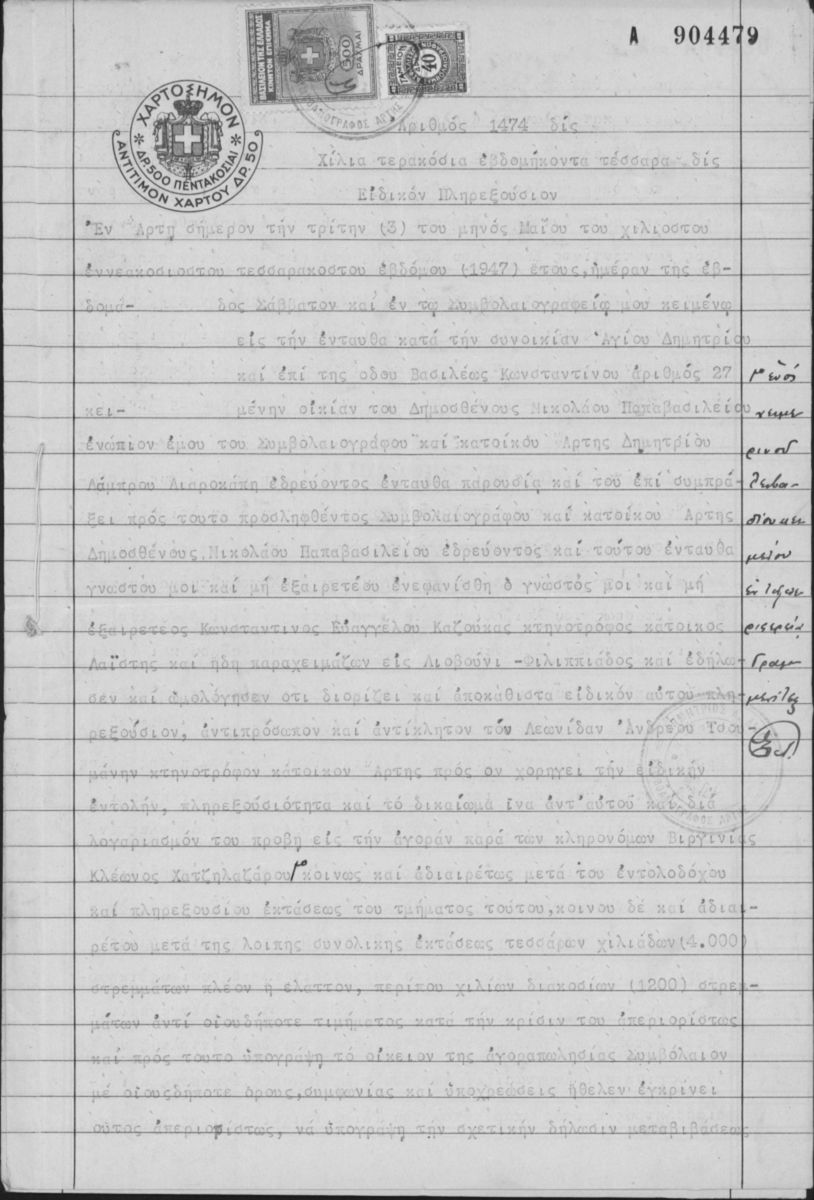 Α 904479
ΧΑΡΤΟΣΗΜΟΝ
ΔΡ 500 ΠΕΝΤΑΚΟΣΙΑΙ
ΑΝΤΙΤΙΜΟΝ ΧΑΡΤΟΥ ΔΡ. 50
500 ΔΡΑΧΜΑΙ
40
Ἀριθμός 1474 δίς
Χίλια τερακόσια ἑβδομήκοντα τέσσαρα δίς
Εἰδικόν Πληρεξούσιον
Ἐν Ἄρτη σήμερον τήν τρίτην (3) του μηνός Μαΐου του χιλιοστου
ἐννεακοσιοστου τεσσαρακοστου ἑβδόμου (1947) ἔτους, ἡμέραν της ἑβ-
δομά- δος Σάββατον καί ἐν τῳ Συμβολαιογραφείῳ μου κειμένῳ
εἰς τήν ἐνταυθα κατά τήν συνοικίαν Ἁγίου Δημητρίου
καί ἐπί της οδου Βασιλέως Κωνσταντίνου ἀριθμός 27
κει- μένην οἰκίαν του Δημοσθένους Νικολάου Παπαβασιλείου
ἐνώπιον ἐμου του Συμβολαιογράφου καί κατοίκου Ἄρτης Δημητρίου
Λάμπρου Λιαροκάπη ἑδρεύοντος ἐνταυθα παρουσίᾳ καί του ἐπί συμπρά-
ξει πρός τουτο προσληφθέντος Συμβολαιογράφου καί κατοίκου Ἄρτης
Δημοσθένους Νικολάου Παπαβασιλείου ἑδρεύοντος καί τούτου ἐνταυθα
γνωστου μοι καί μή ἐξαιρετέου ἐνεφανίσθη ὁ γνωστός μοι καί μή
ἐξαιρετέος Κωνσταντινος Εὐαγγέλου Καζούκας κτηνοτρόφος κάτοικος
Λαΐστης καί ἤδη παραχειμάζων εἰς Λιοβούνι -Φιλιππιάδος καί ἐδήλω-
σεν καί ὡμολόγησεν οτι διορίζει καί ἀποκαθιστα εἰδικόν αὐτου πλη-
ρεξούσιον, ἀντιπρόσωπον καί ἀντίκλητον τόν Λεωνίδαν Ἀνδρέου Τσου-
μάνην κτηνοτρόφον κάτοικον Ἄρτης πρός ον χορηγει τήν εἰδικήν
ἐντολήν, πληρεξουσιότητα καί τό δικαίωμα ἵνα ἀντ'αὐτου καί διά
λογαριασμόν του προβῃ εἰς τήν ἀγοράν παρά των κληρονόμων Βιργινίας
Κλέωνος Χατζηλαζάρου κοινως καί ἀδιαιρέτως μετά του ἐντολοδόχου
καί πληρεξουσίου ἐκτάσεως του τμήματος τούτου, κοινου δέ καί ἀδιαι-
ρέτου μετά της λοιπης συνολικης ἐκτάσεως τεσσάρων χιλιάδων (4.000)
στρεμμάτων πλέον ἤ ἔλαττον, περίπου χιλίων διακοσίων (1200) στρεμ-
μάτων ἀντί οἱουδήποτε τιμήματος κατά τήν κρίσιν του ἀπεριορίστως
καί πρός τουτο ὑπογράψῃ τό οἰκειον της ἀγοραπωλησίας Συμβόλαιον
μέ οἱουςδήποτε ὅρους, συμφωνίας καί ὑποχρεώσεις ἤθελεν ἐγκρίνει
οὗτος ἀπεριορίστως, νά ὑπογράψῃ τήν σχετικήν δήλωσιν μεταβιβάσεως